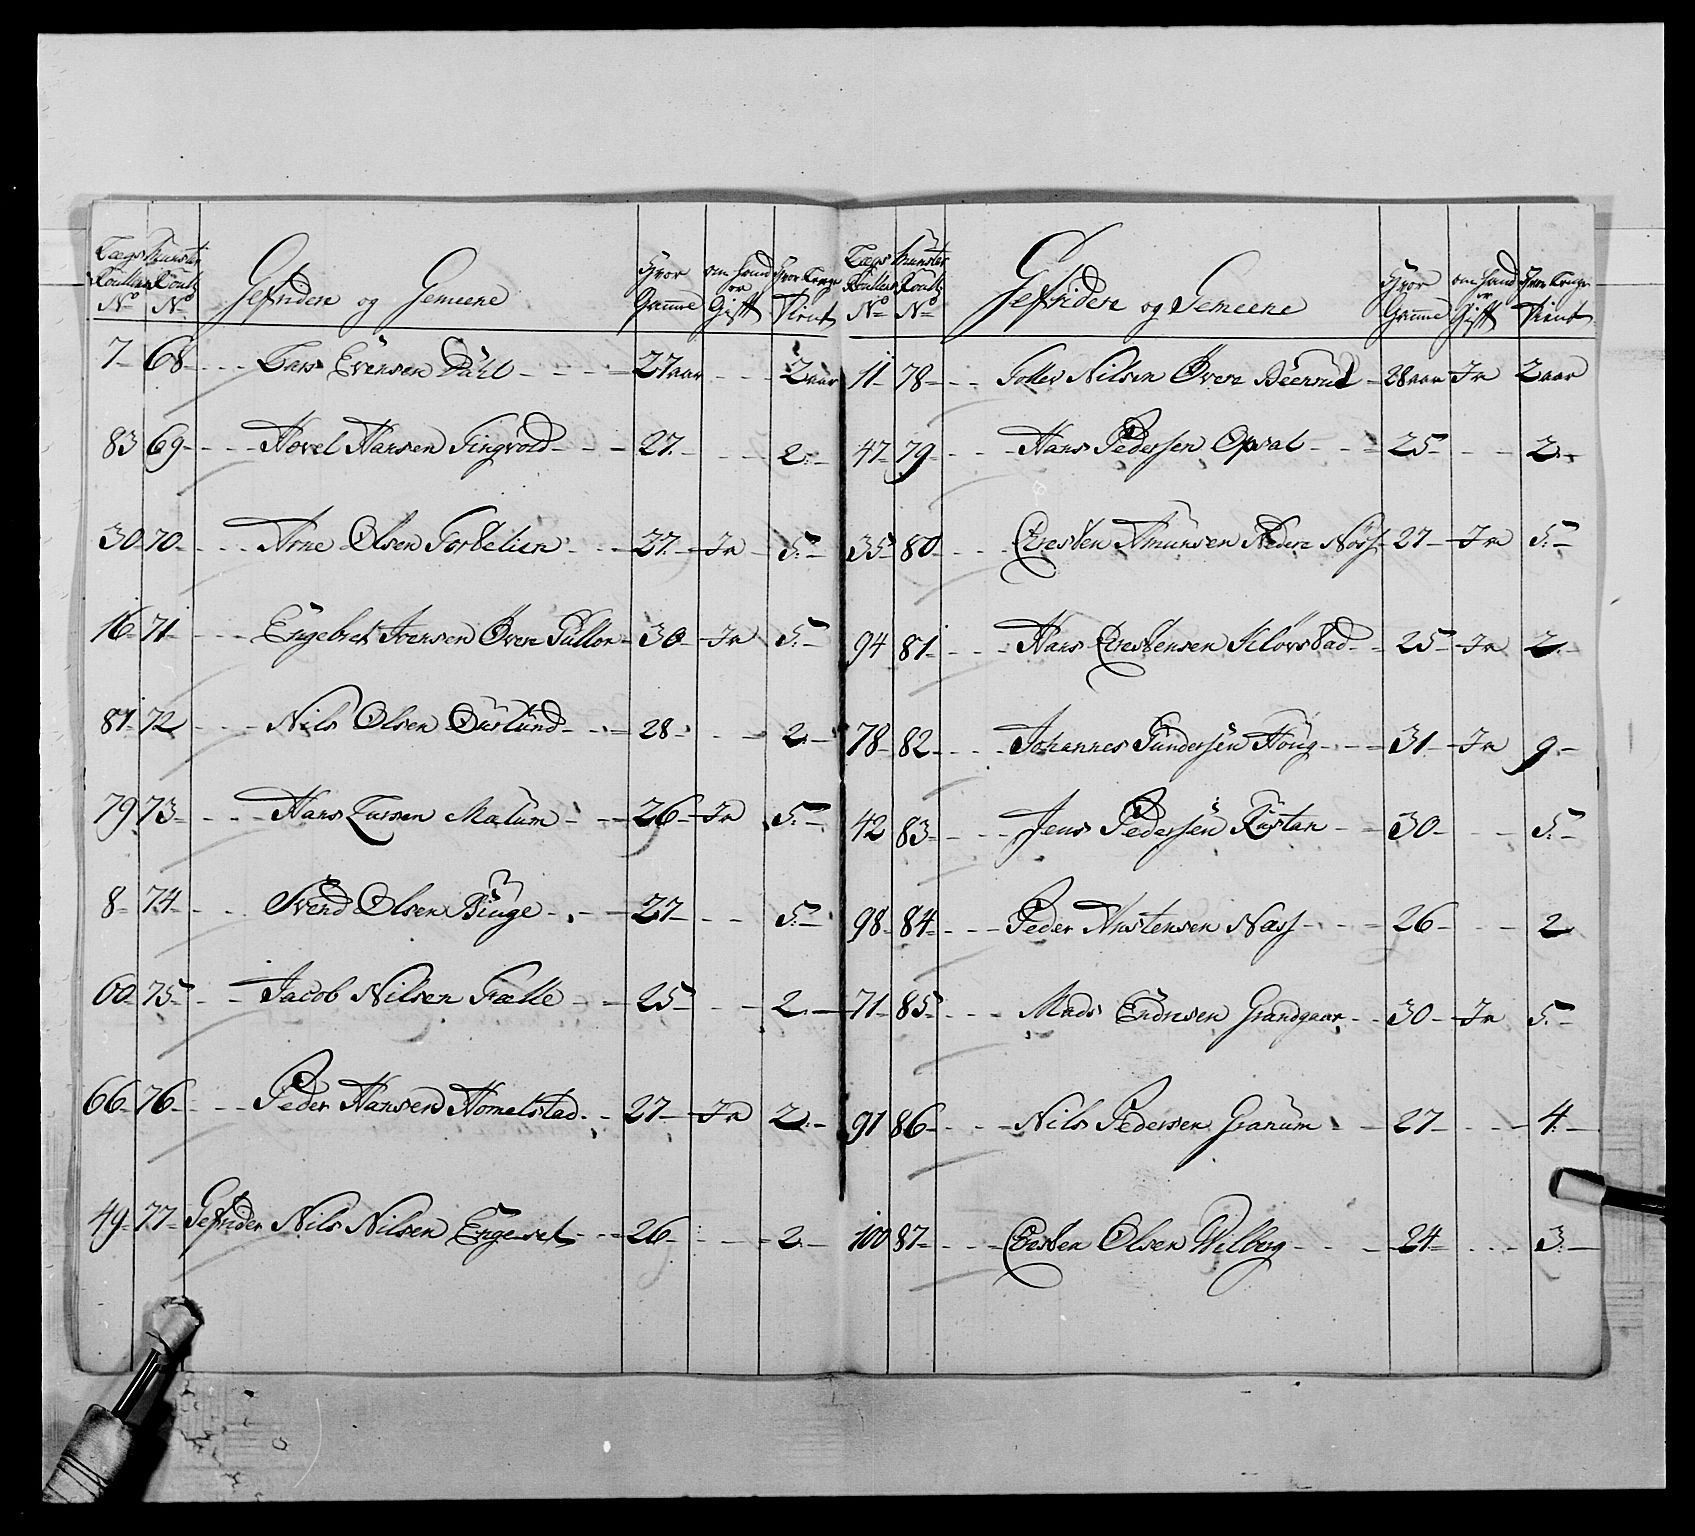 Lægs Roullens No | Munster Roulls No | Gefrider og Gemeene | Hvor Gamme | om hand er Gift | Hvor lenge Tient
7 68 Lars Evensen Dahl 27 aar 2 aar
83 69 Hovel Hansen Tingvold 27 2
30 70 Arne Olsen 27 Ja 5
16 71 Engebret Ivensen Øvere 30 Ja 5
81 72 Nils Olsen 28 2
79 73 Hans Larsen Malum 26 Ja 5
8 74 Svend Olsen Binge 27 5
60 75 Jacob Nilsen 25 2
66 76 Peder Hansen Homelstad 27 Ja 2
49 77 Gefrider Nils Nilsen Engeset 26 2
Lægs Roullens No | Munster Roulls No | Gefridere og Gemeene | Hvor Gamme | om hand er Gift | Hvor lenge Tient
11 78 Nilsen Øvere 28 aar Ja 2 aar
47 79 Hans Pedersen Opsal 25 2
35 80 Cresten Amunsen Nedere Nøss 27 Ja 5
94 81 Hans Crestensen 25 Ja 2
78 82 Johannes Gundersen Houg 31 Ja 9
42 83 Jens Pedersen Rustan 30 5
98 84 Peder Næss 26 2
71 85 Mads Endresen Grandgaar 30 Ja 5
91 86 Nils Pedersen Granum 27 4
100 87 Cresten Olsen Wilberg 24 3